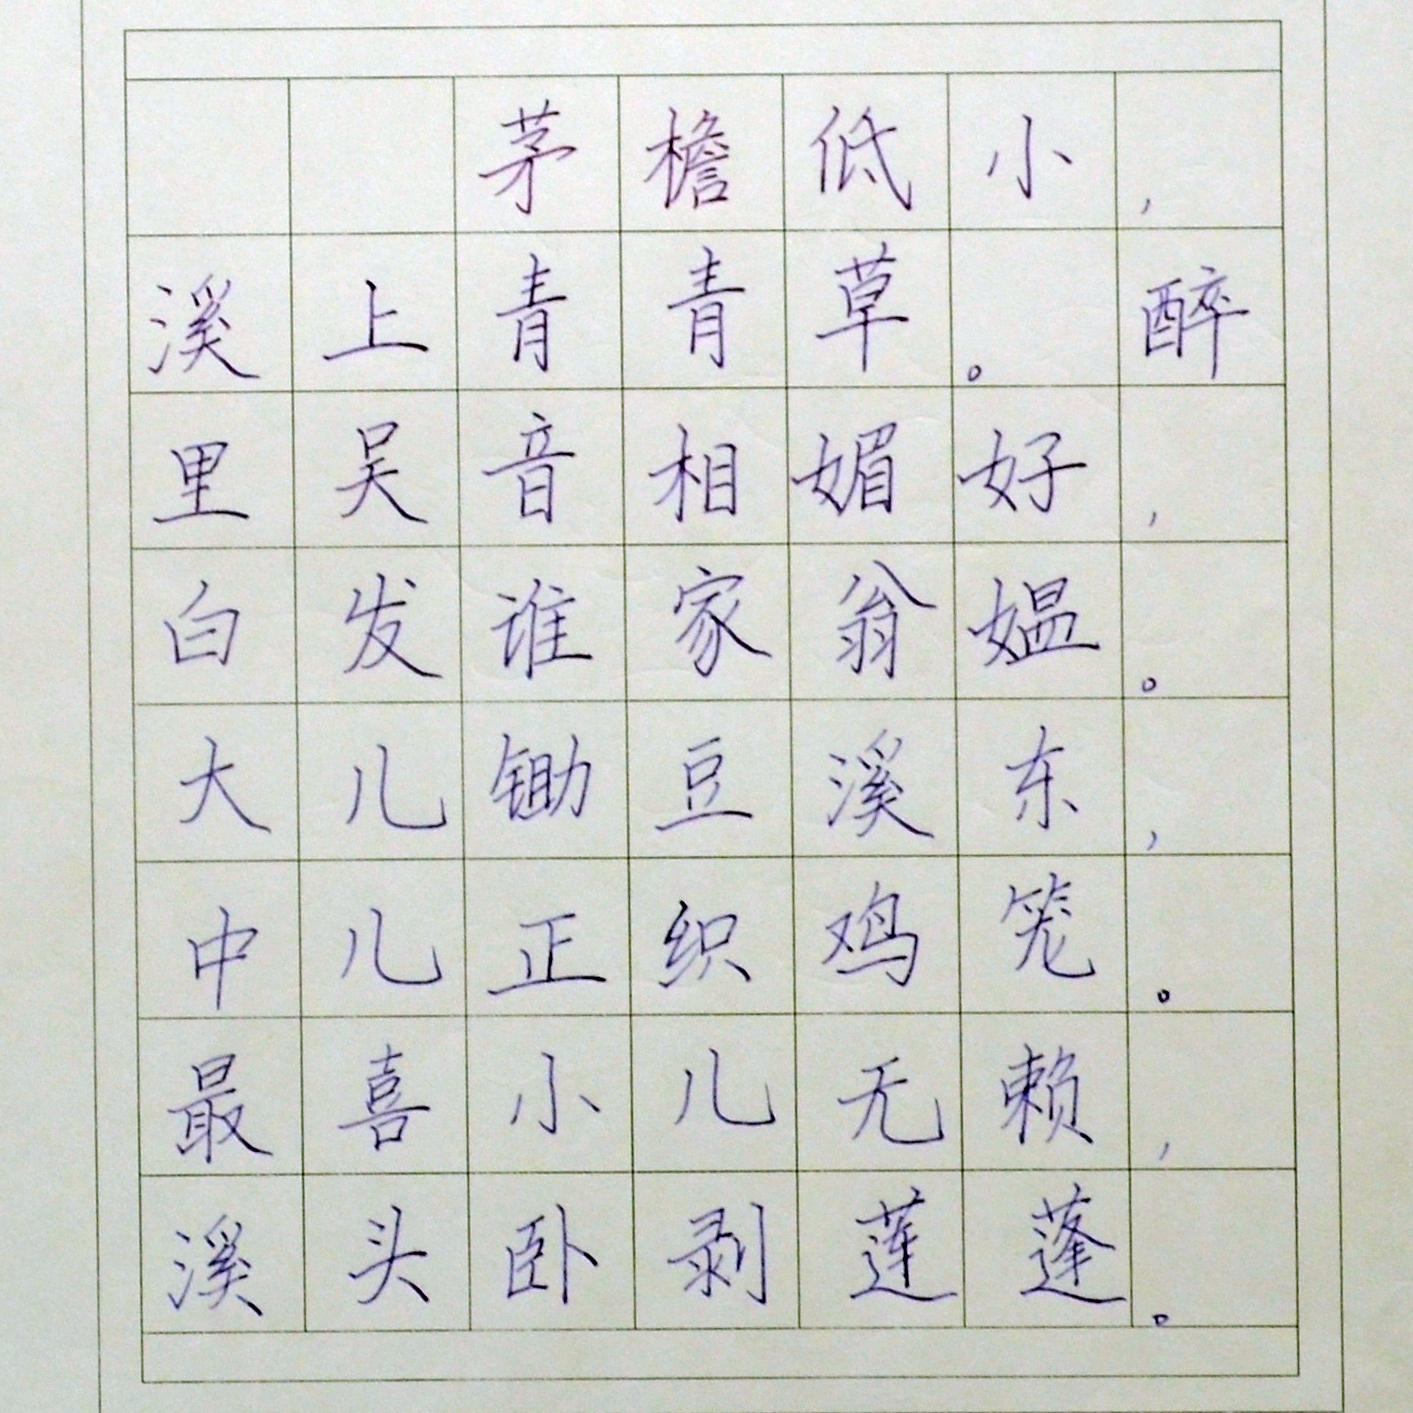 茅檐低小，
溪上青青草。醉
里吴音相媚好，
白发谁家翁媪。
大儿锄豆溪东，
中儿正织鸡笼。
最喜小儿无赖，
溪头卧剥莲蓬。